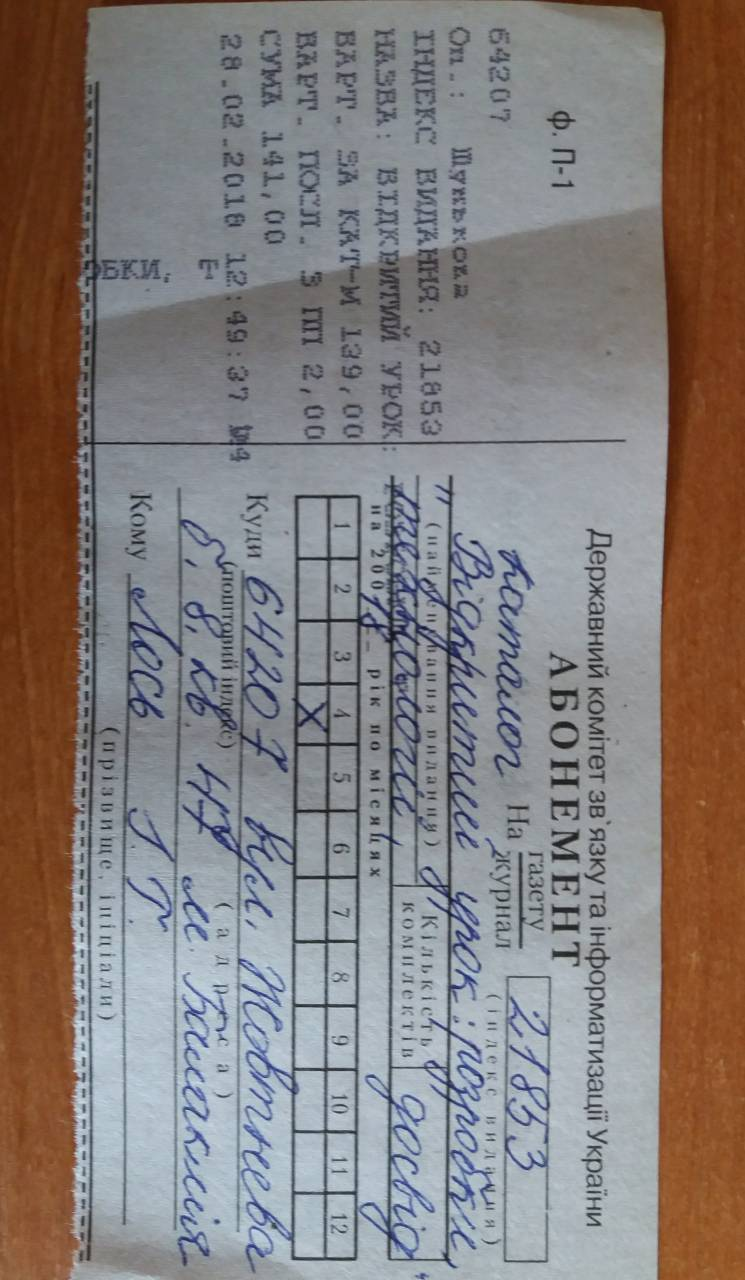 ф. П-1
64207
Оп.: Шунькова
ІНДЕКС ВИДАННЯ: 21853
НАЗВА: ВІДКРИТИЙ УРОК:
ВАРТ. ЗА КАТ-М 139,00
ВАРТ. ПОСЛ. З ПП 2,00
СУМА 141,00
28.02.2018 12:49:37 №4
ОБКИ,
Державний комітет зв`язку та інформатизації України
АБОНЕМЕНТ
каталог На газету журнал 21853
(індекс видання)
"Відкритий урок: розробки,
(найменування видання)
технології, досвід"
Кількість комплектів
на 2018 рік по місяцях
1 2 3 4 5 6 7 8 9 10 11 12
X
Куди 64207 вул. Жовтнева
(поштовий індекс) (адреса)
б, 8, кв. 47 м. Балаклія
Кому Лось І. Г.
(прізвище, ініціали)